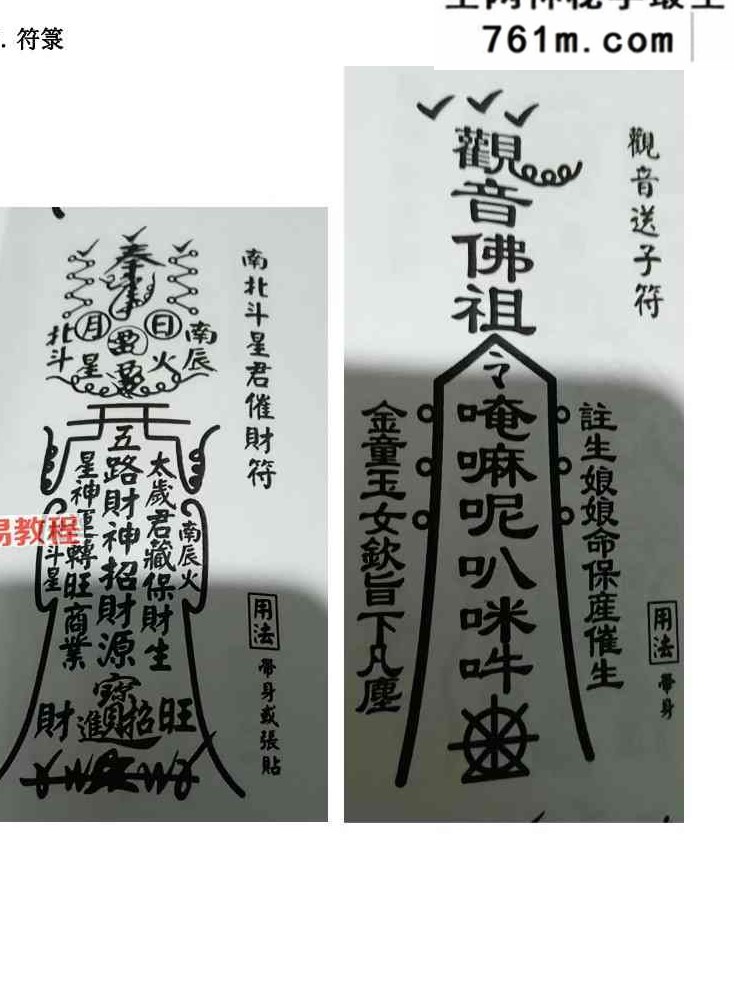 761m.com
. 符箓
觀音送子符
觀音佛祖
令
唵嘛呢叭咪吽
註生娘娘命保産催生
金童玉女欽旨下凡塵
用法
帶身
南北斗星君催財符
日
月
南辰
火
北斗
星
太歲君藏保財生
五路財神招財源
星神運轉旺商業
南辰火
斗星
易教程
財
旺
用法
帶身或張貼